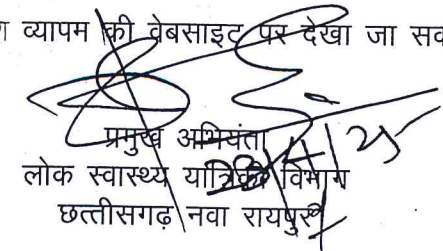 व्यापम की वेबसाइट पर देखा जा सक
प्रमुख अभियंता
लोक स्वास्थ्य यांत्रिकी विभाग
छत्तीसगढ़ नवा रायपुर